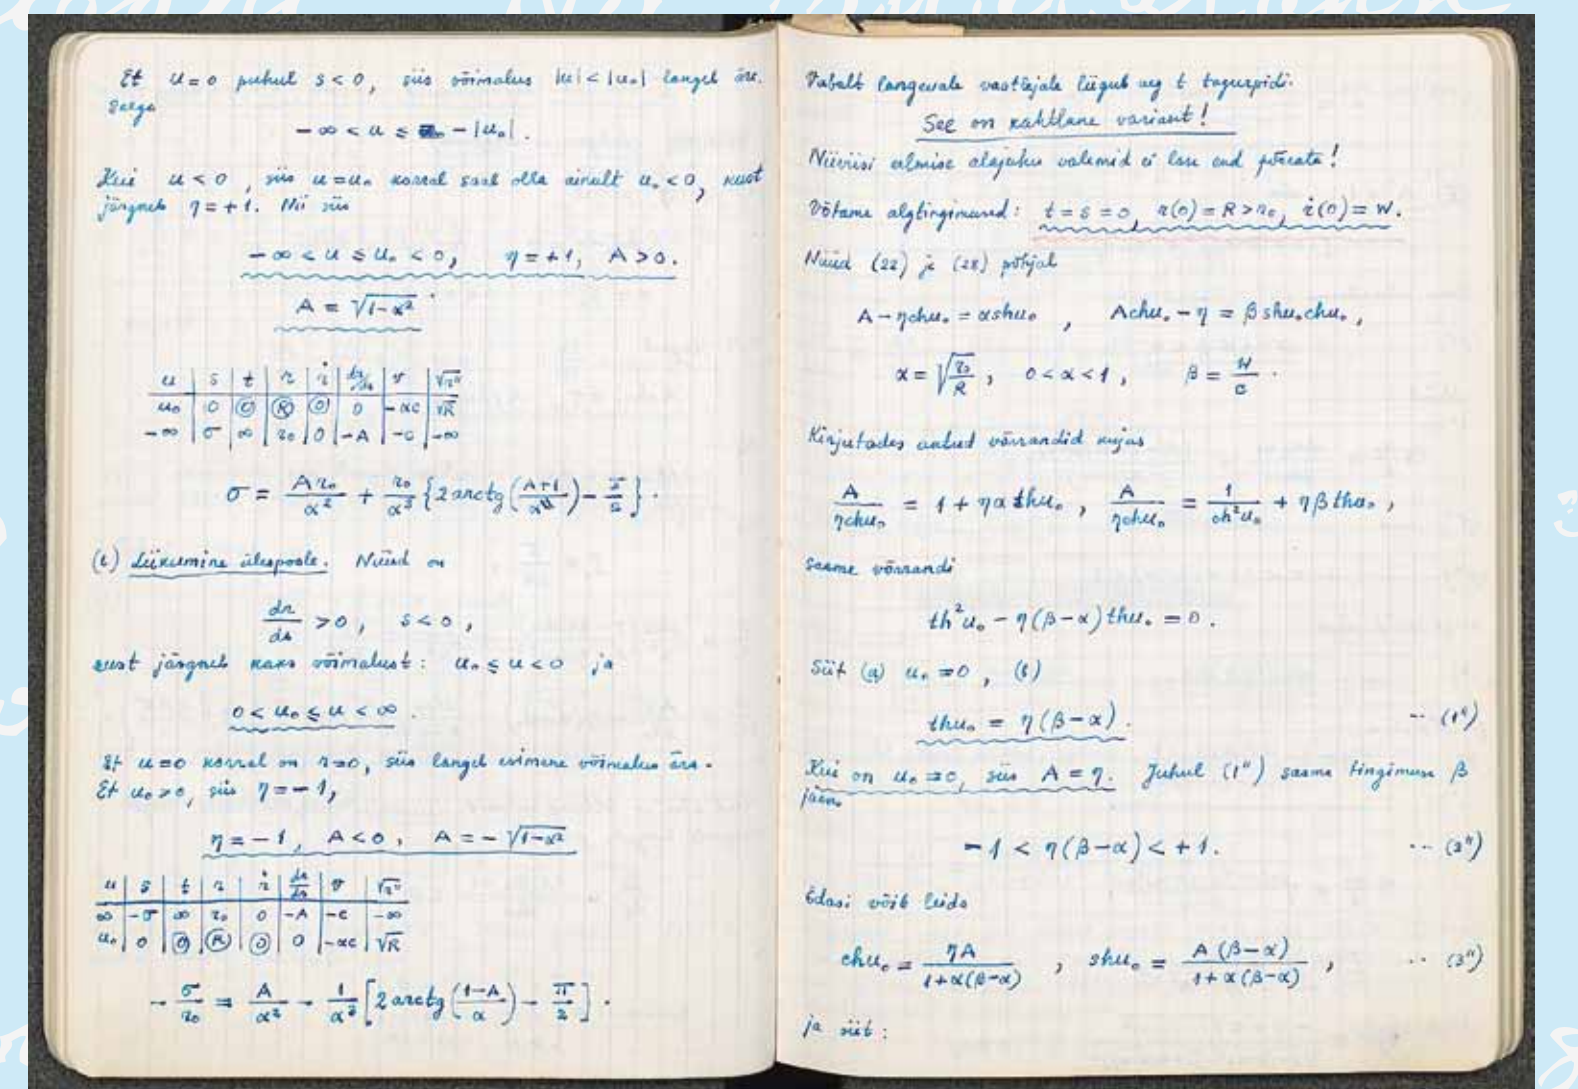 Et u=0 puhul s<0, siis võimalus |u|<|u₀| langeb ära.
Seega
−∞ < u ≤ −|u₀|.
Kui u<0, siis u=u₀ korral saab olla ainult u₀<0, kust
järgneb η=+1. Nii siis
−∞ < u ≤ u₀ < 0, η=+1, A>0.
A = √(1−α²)
u | s | t | r | ṙ | dr/ds | v | √r″
u₀ | 0 | 0 | R | 0 | 0 | −αc | √R
−∞ | σ | ∞ | r₀ | 0 | −A | −c | −∞
σ = Ar₀/α² + r₀/α³ {2 arctg((A+1)/α) − π/2}.
Liikumine ülespoole. Nüüd on
dr/ds > 0, s<0,
kust järgneb kaks võimalust: u₀ ≤ u < 0 ja
0 < u₀ ≤ u < ∞.
Et u=0 korral on r=0, siis langeb esimene võimalus ära.
Et u₀>0, siis η=−1,
η=−1, A<0, A=−√(1−α²)
u | s | t | r | ṙ | dr/ds | v | √r″
∞ | −σ | ∞ | r₀ | 0 | −A | −c | −∞
u₀ | 0 | 0 | R | 0 | 0 | −αc | √R
−σ/r₀ = A/α² − 1/α³ [2 arctg((1−A)/α) − π/2].
Vabalt langevale vaatlejale liigub aeg t tagurpidi.
See on kahtlane variant!
Niiviisi eelmise alajaotus valemid ei lase end päästa!
Võtame algtingimused: t=s=0, r(0)=R>r₀, ṙ(0)=W.
Nüüd (22) ja (28) põhjal
A−ηchu₀ = αshu₀, Achu₀−η = βshu₀chu₀,
α=√(r₀/R), 0<α<1, β=W/c.
Kirjutades antud võrrandid kujus
A/(ηchu₀) = 1+ηα thu₀, A/(ηchu₀) = 1/(ch²u₀) + ηβthu₀,
saame võrrandi
th²u₀ − η(β−α)thu₀ = 0.
Siit (a) u₀=0, (b)
thu₀ = η(β−α). ·· (1″)
Kui on u₀=0, siis A=η. Juhul (1″) saame tingimuse β
jaoks
−1 < η(β−α) < +1. ·· (2″)
Edasi võib leida
chu₀ = ηA/(1+α(β−α)), shu₀ = A(β−α)/(1+α(β−α)), ·· (3″)
ja siit: